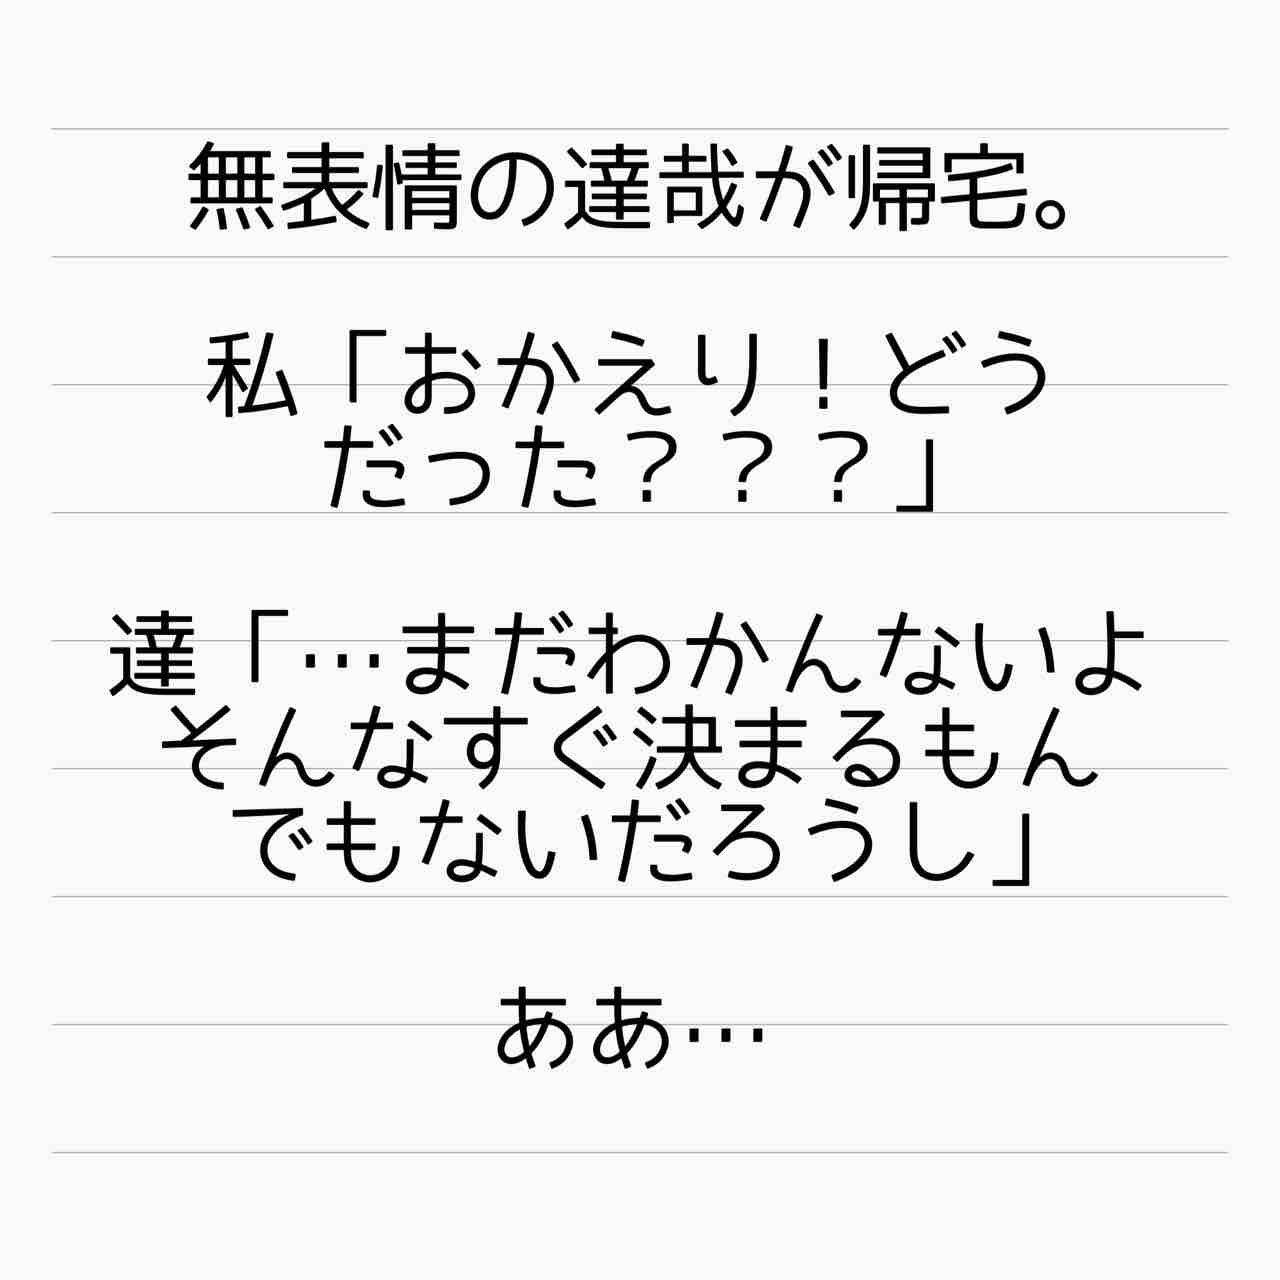 無表情の達哉が帰宅。
私「おかえり！どう
だった？？？」
達「…まだわかんないよ
そんなすぐ決まるもん
でもないだろうし」
ああ…